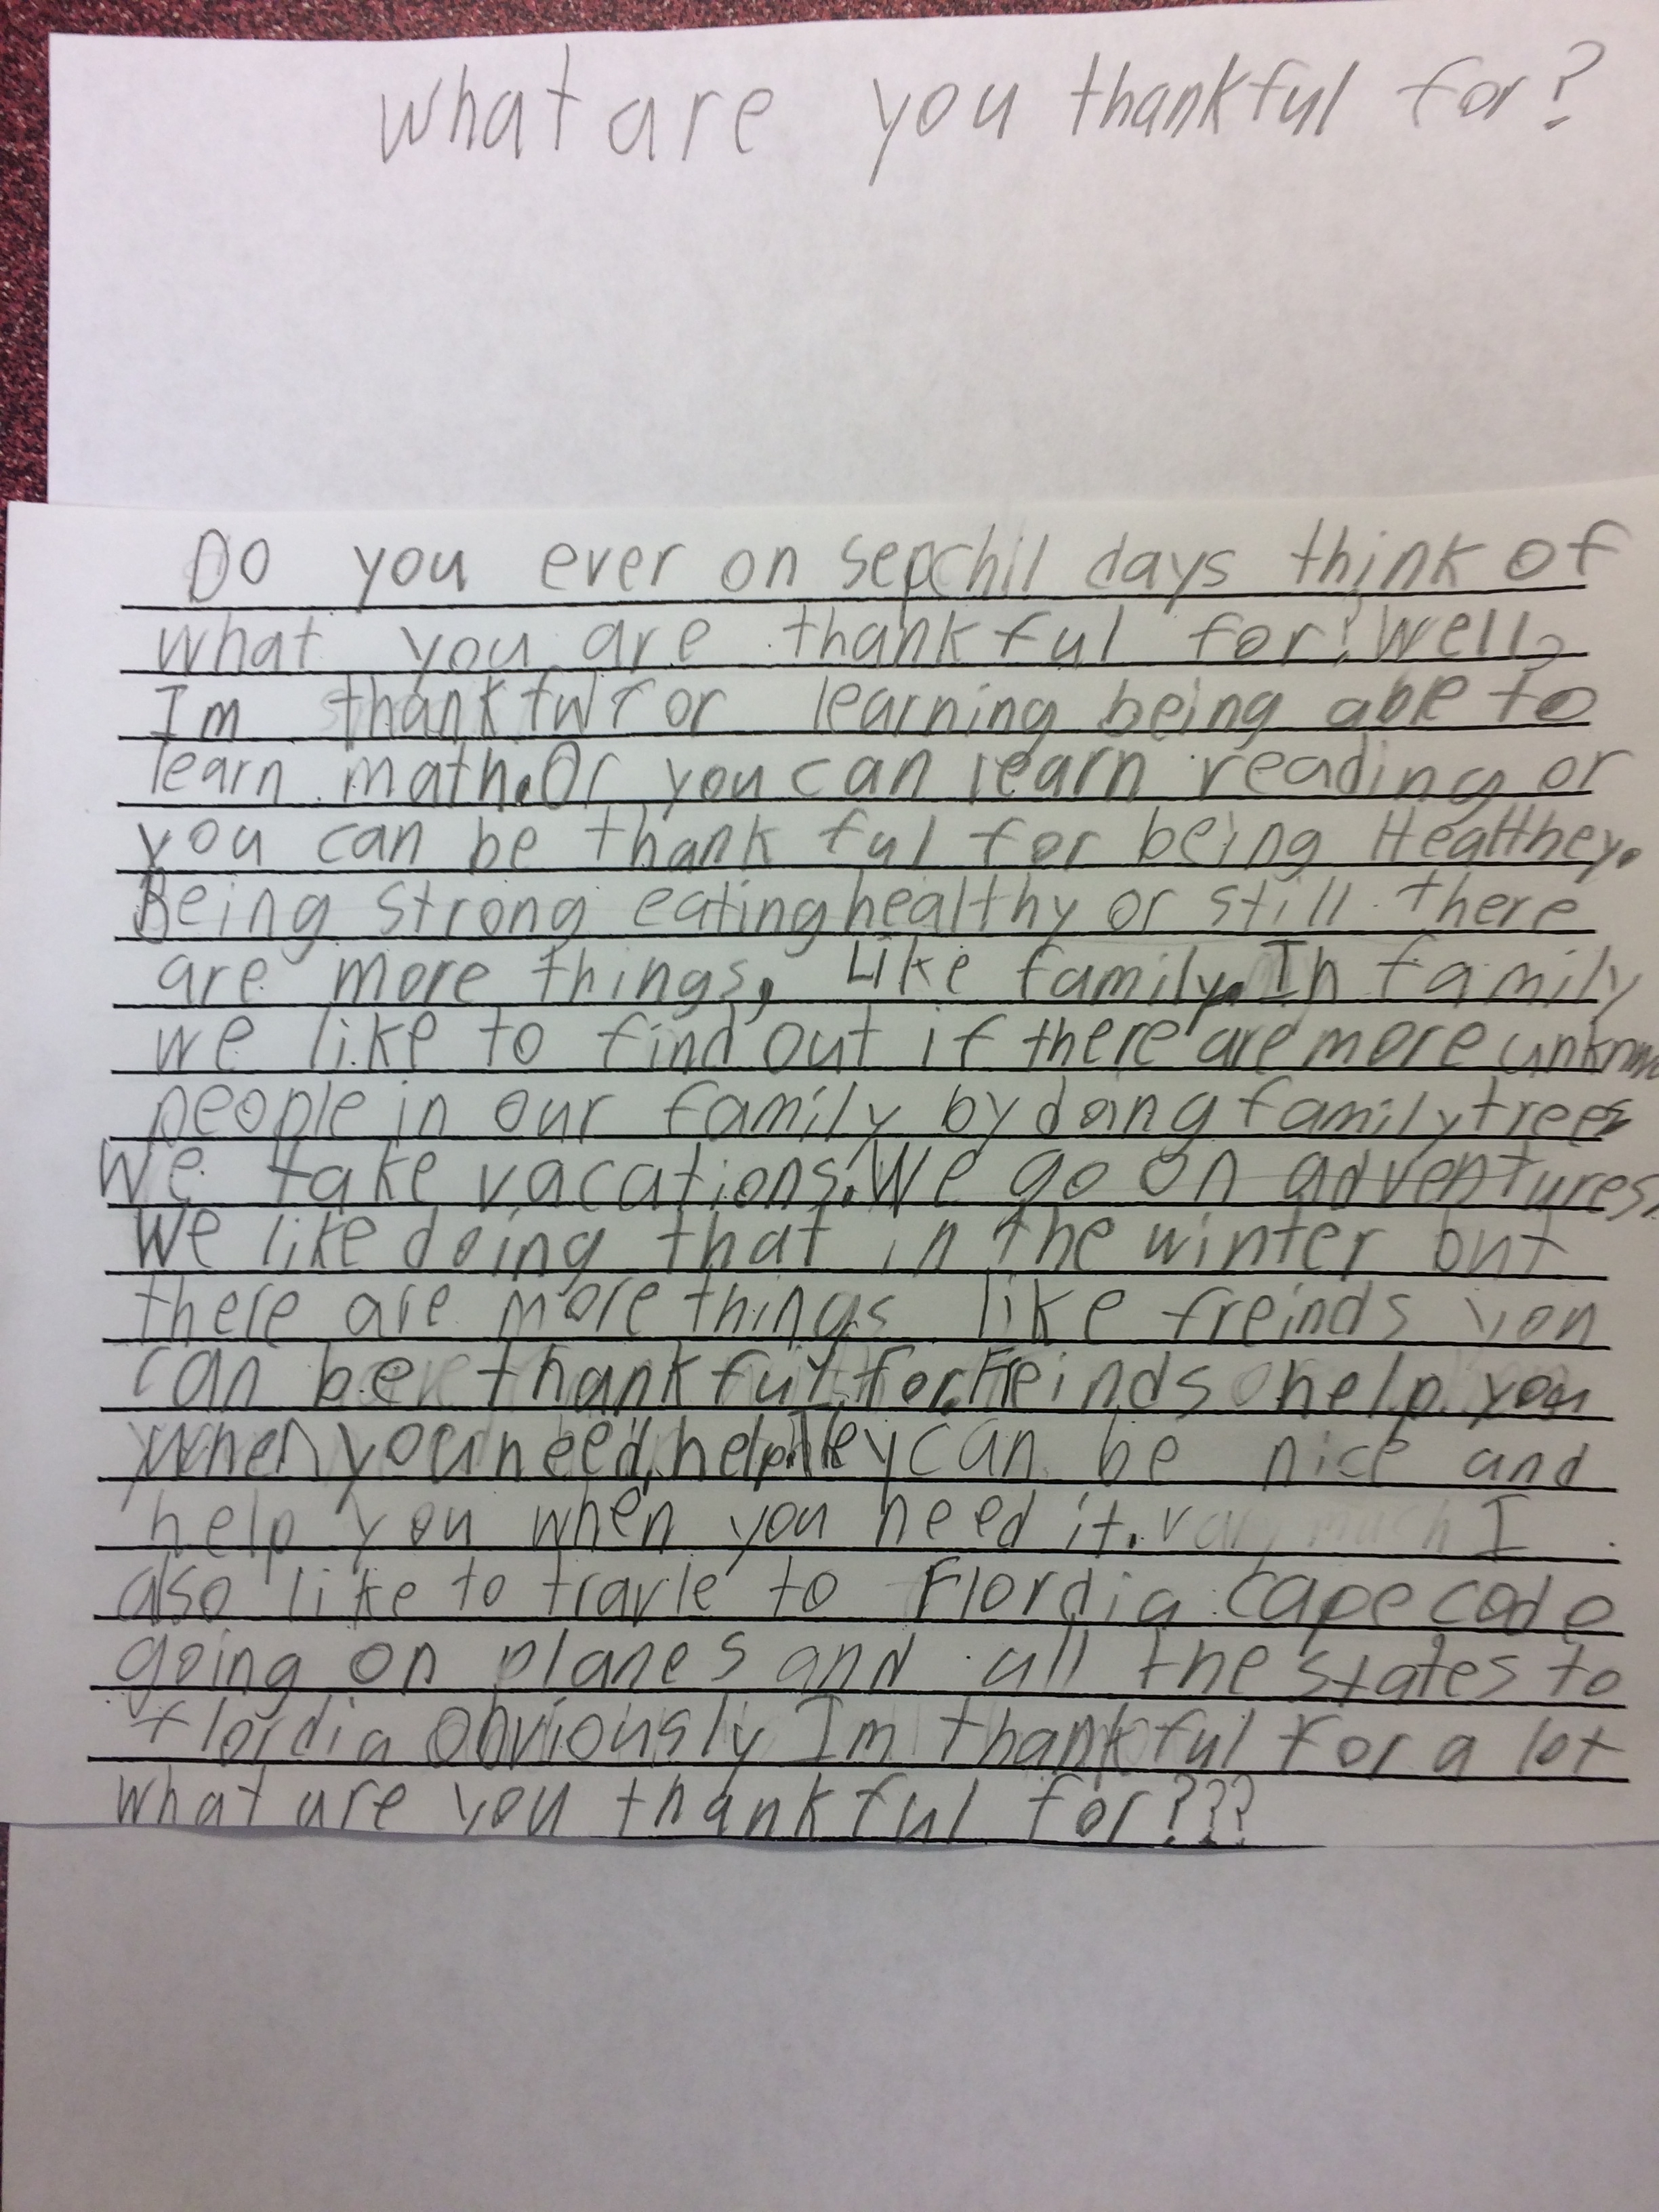 What are you thankful for?
Do you ever on sepchil days think of
what you are thankful for? Well,
Im thankful for learning being able to
learn math. Or you can learn reading or
you can be thankful for being Healthey.
Being strong eating healthy or still there
are more things, Like family. In family
we like to find out if there are more
people in our family by doing family trees
We take vacations. We go on adventures.
We like doing that in the winter but
there are more things like freinds you
can be thankful for. Freinds help you
when you need help. They can be nice and
help you when you need it. I
also like to travle to Flordia cape code
going on planes and all the states to
flordia Obviously Im thankful for a lot
what are you thankful for???